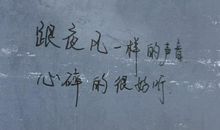 跟夜风一样的声音
心碎的很好听